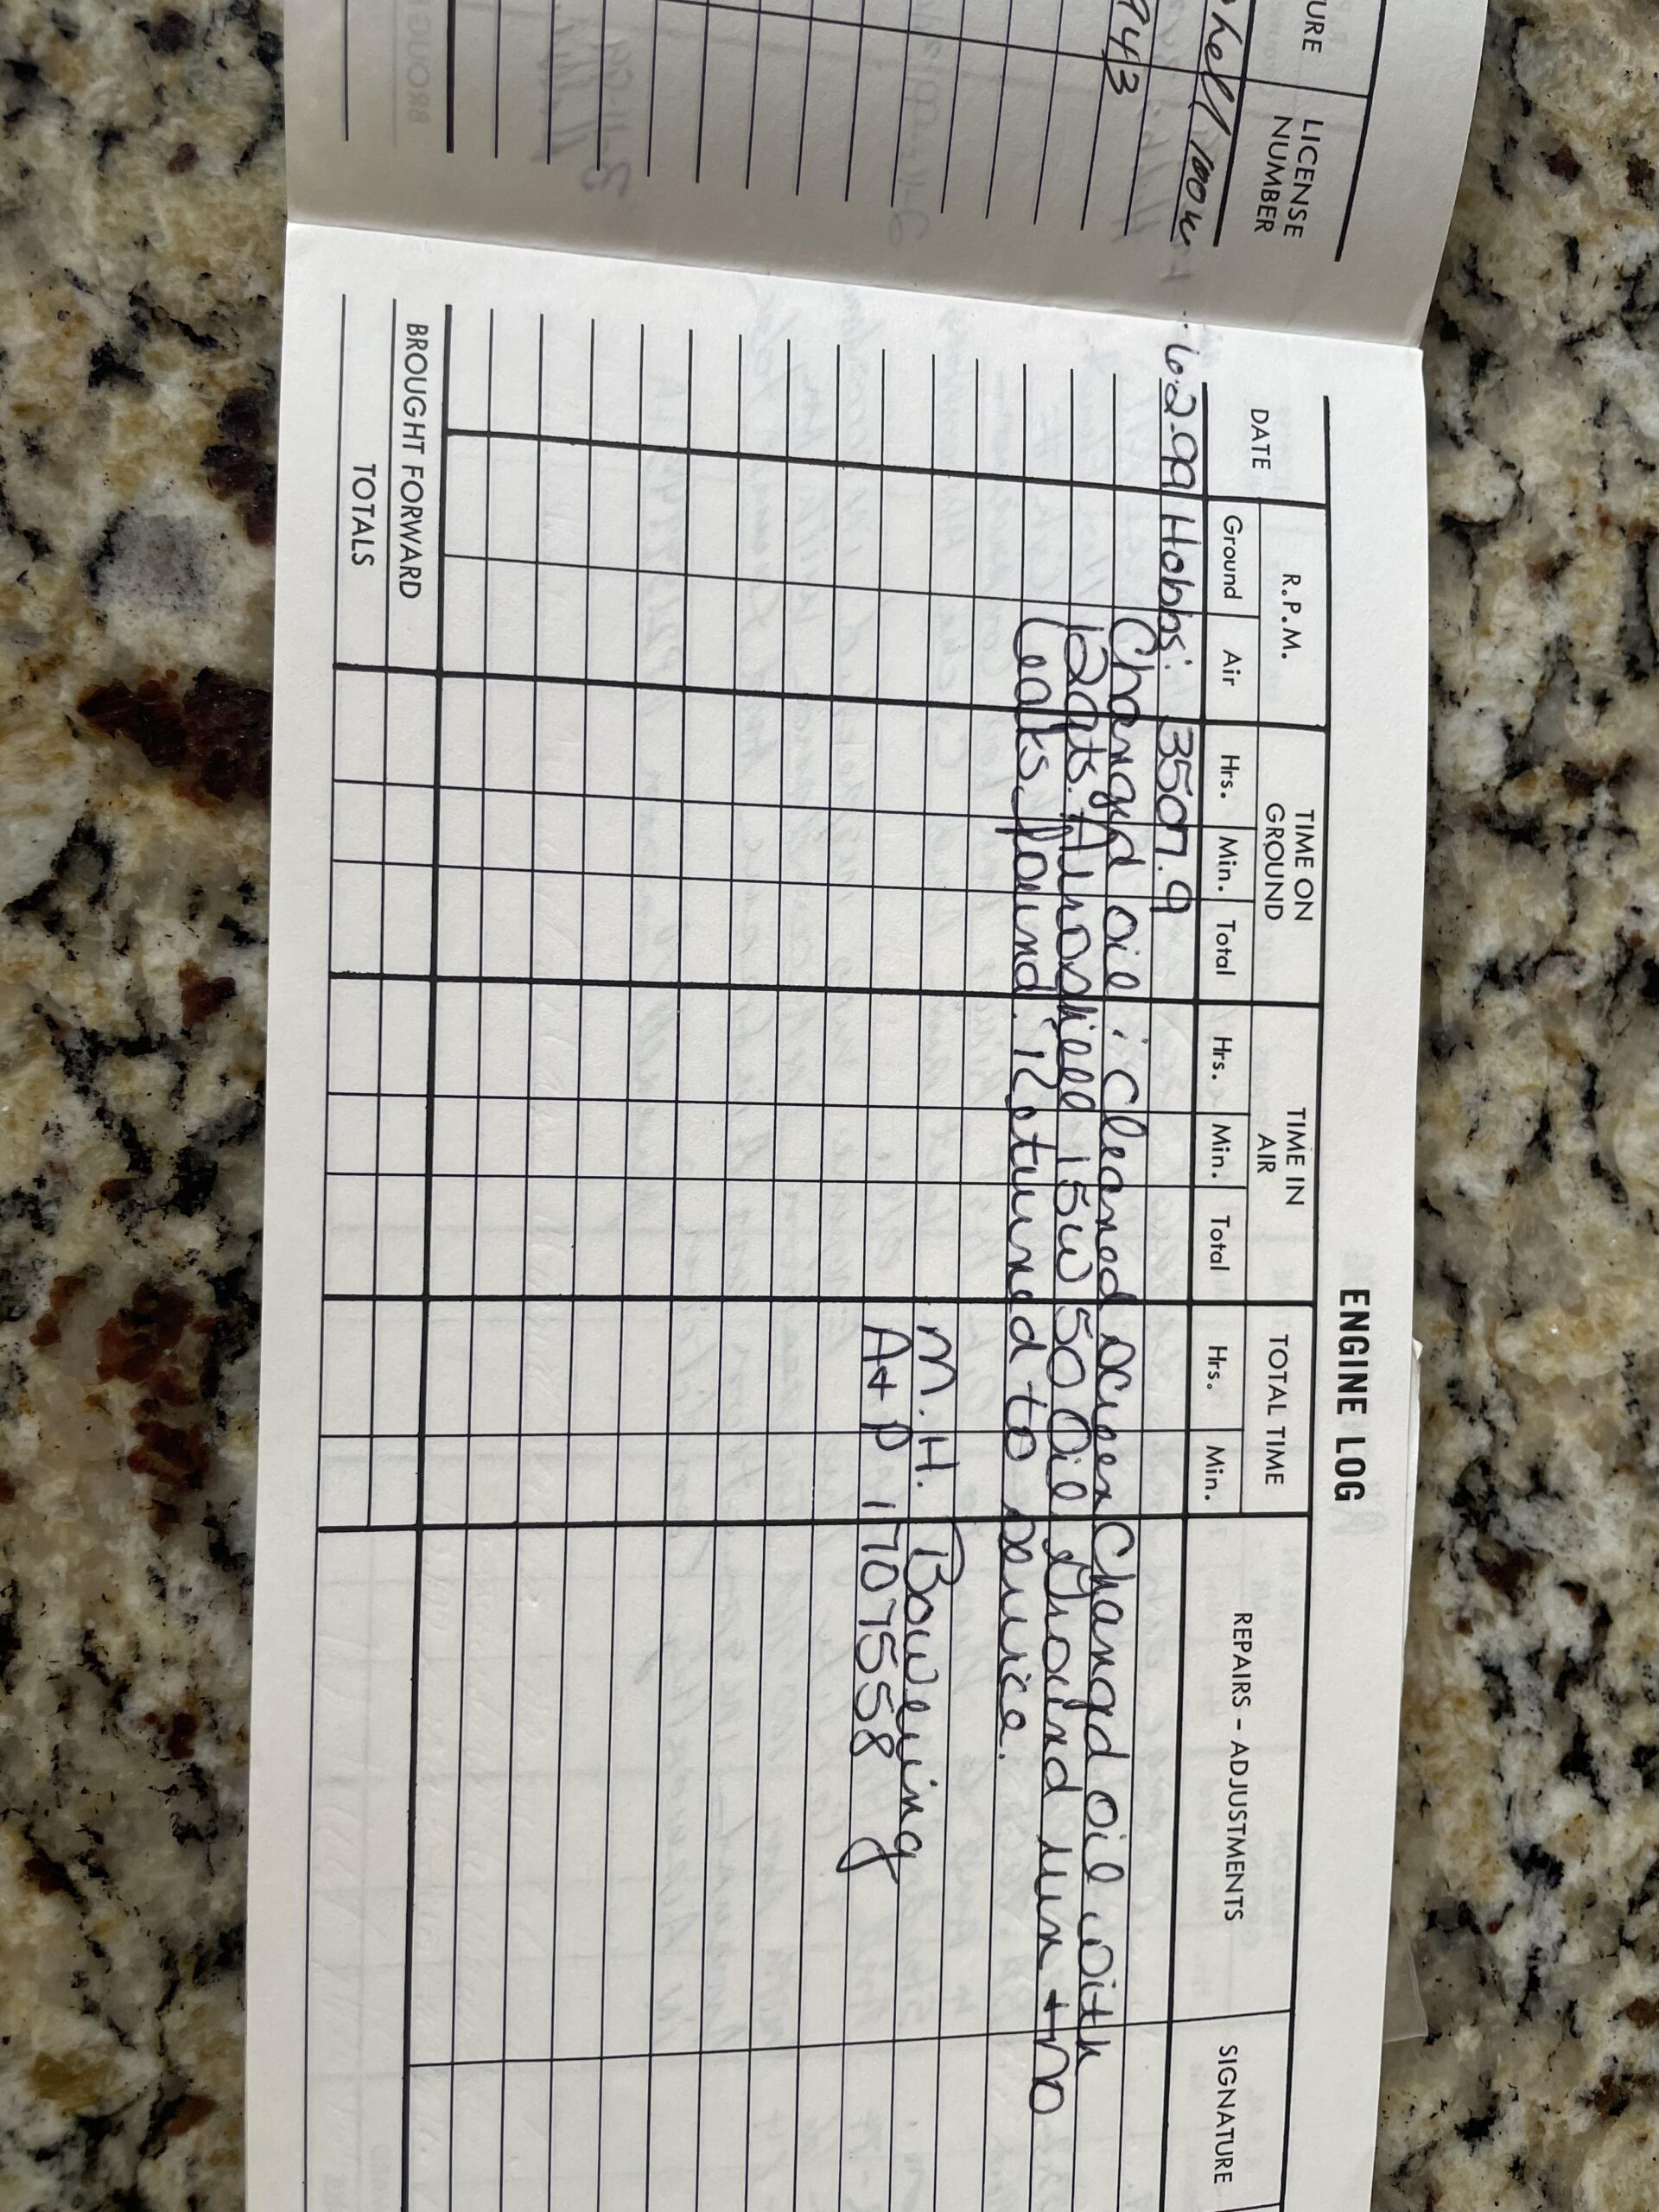 URE
LICENSE
NUMBER
hell 100w
943
ENGINE LOG
DATE
R.P.M.
Ground
Air
TIME ON
GROUND
Hrs.
Min.
Total
TIME IN
AIR
Hrs.
Min.
Total
TOTAL TIME
Hrs.
Min.
REPAIRS – ADJUSTMENTS
SIGNATURE
6.2.99 Hobbs: 3507.9
Changed oil : Cleaned screen Changed oil with
12qts. Aeroshell 15w50 Oil Ground run + no
leaks found. Returned to service.
M. H. Bowering
A+P 1707558
BROUGHT FORWARD
TOTALS